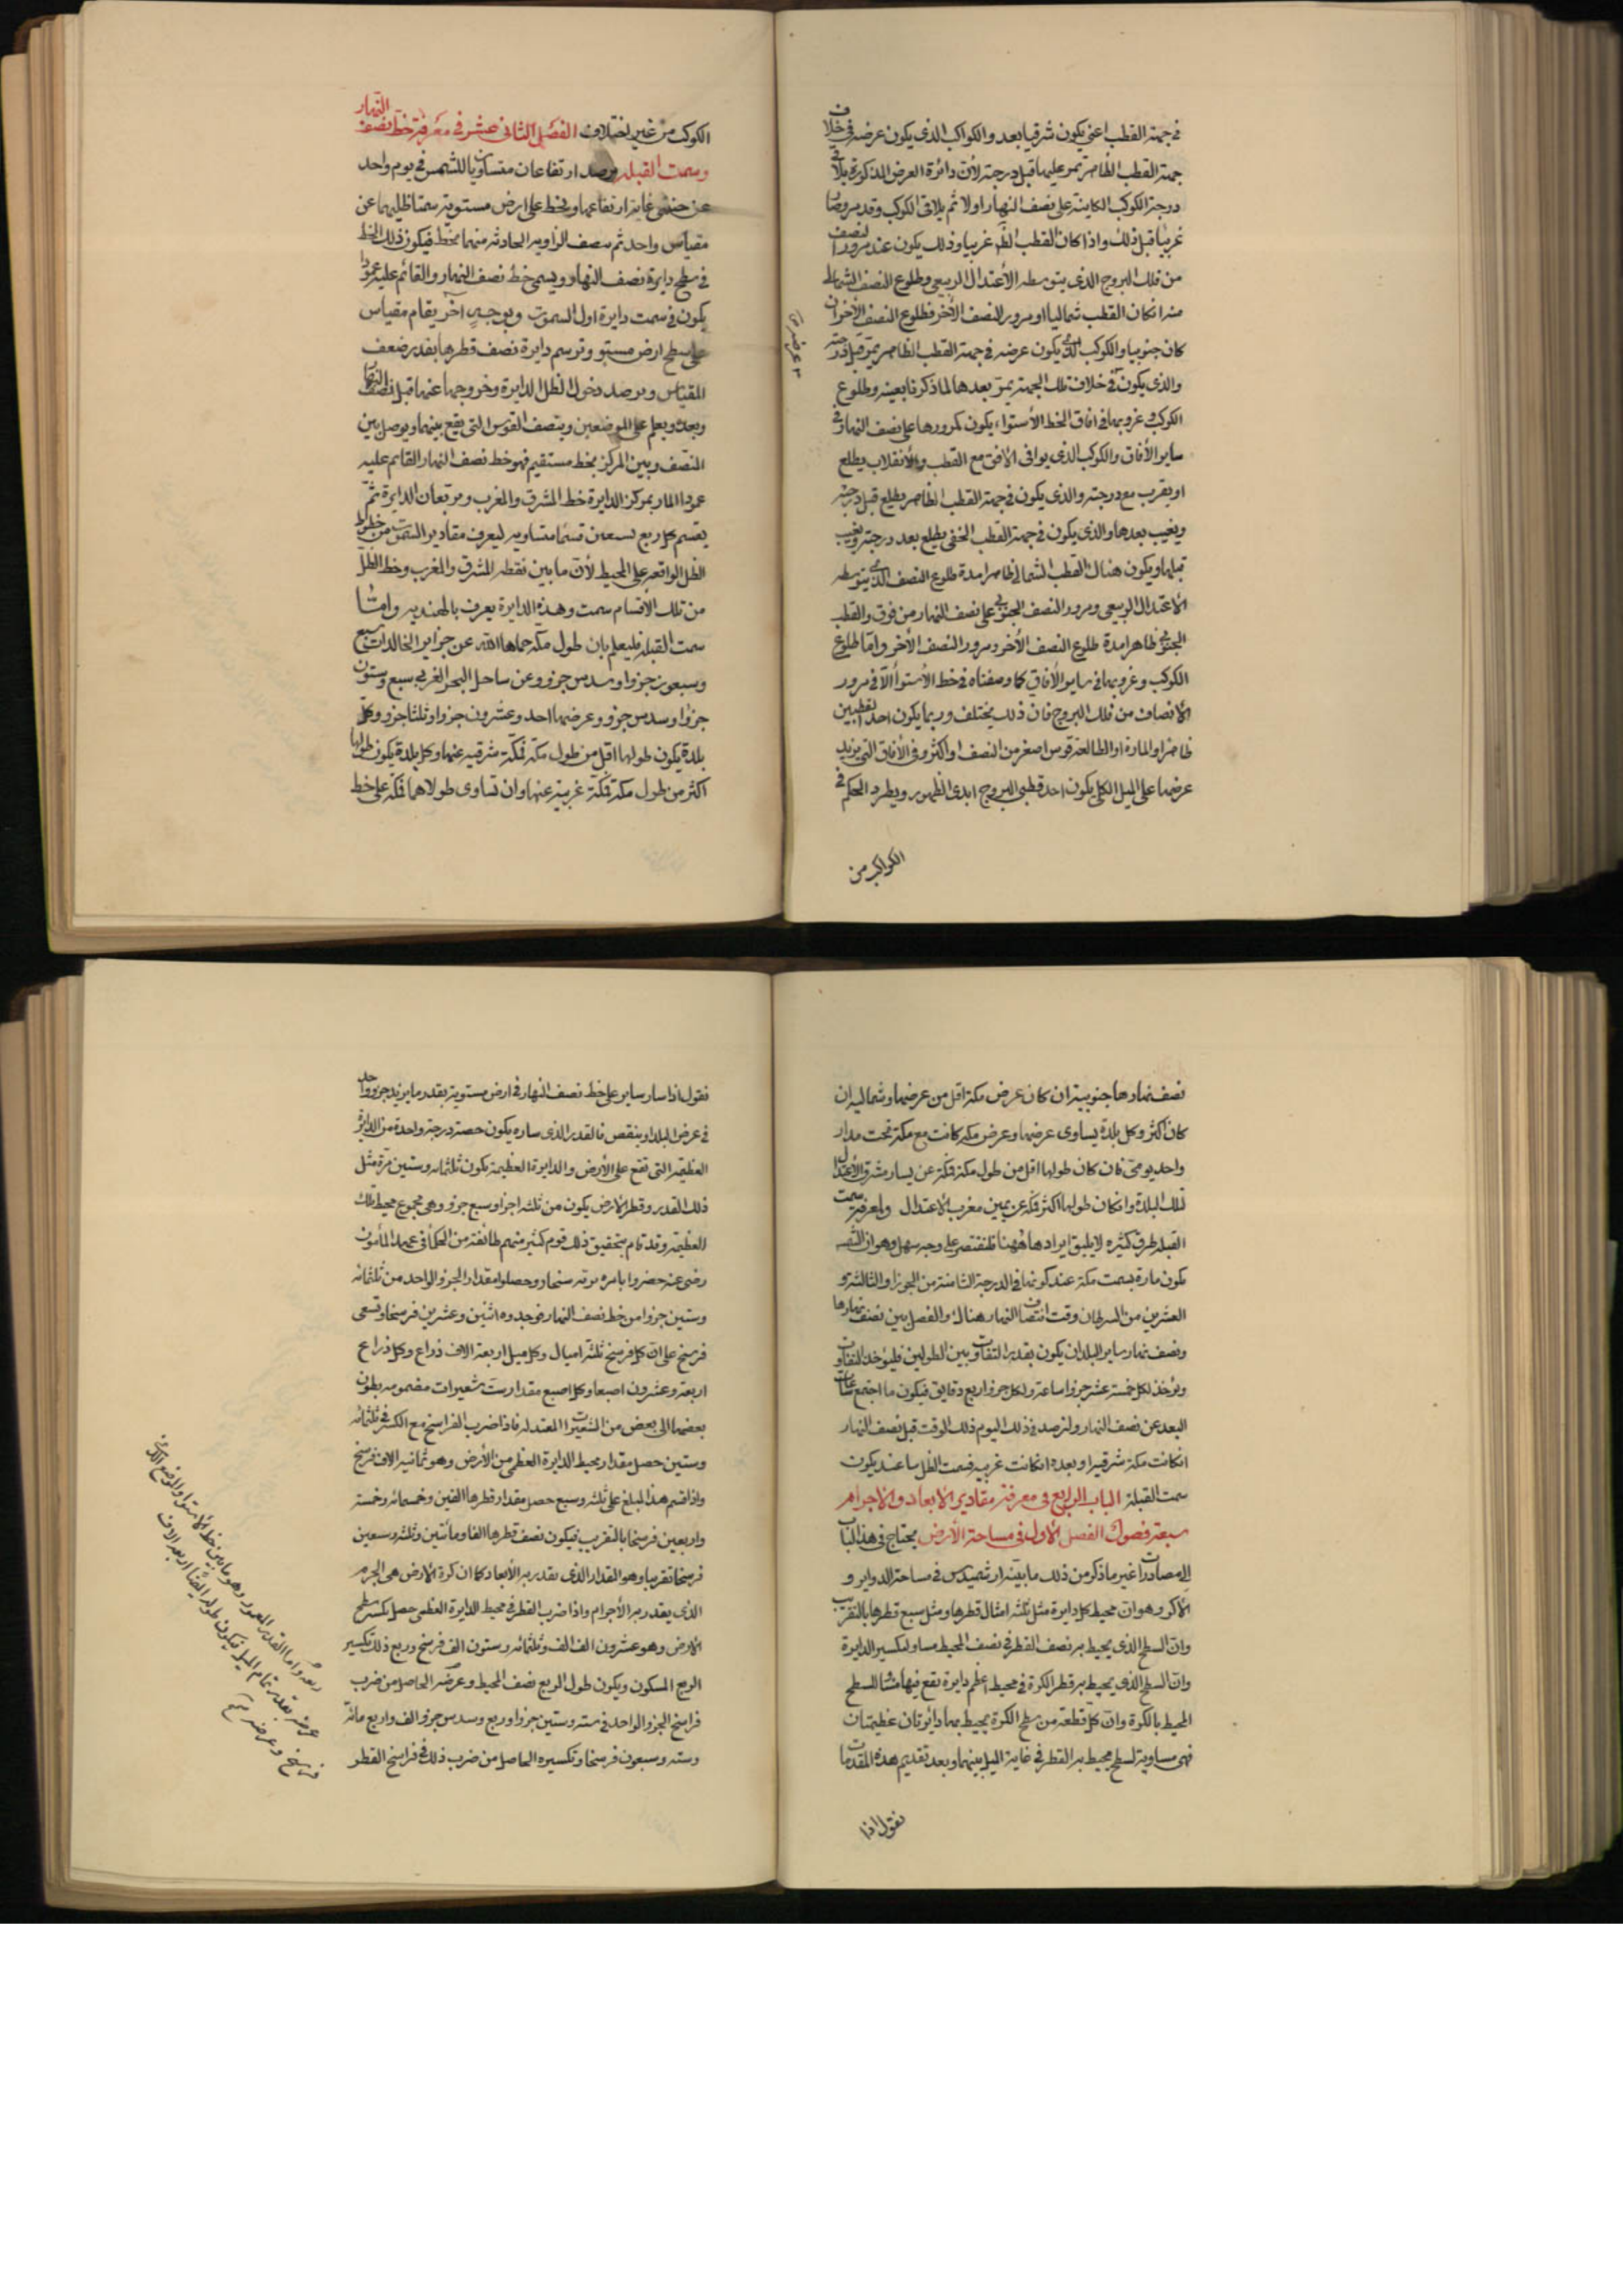 في جهة القطب اعني يكون شرقيا بعد والكواكب الذي يكون عرضه في خلاف
جهة القطب الظاهر تمر عليها قبل درجته لأن دائرة العرض المذكورة يلاقي
درجة الكوكب الكاينة على نصف النهار اولا ثم يلاقي الكوكب وقد مر وصار
غربيا قبل ذلك واذا كان القطب الظ غربيا وذلك يكون عند مرور النصف
من فلك البروج الذي يتوسطه الأعتدال الربيعي وطلوع النصف الشمالي
منه انكان القطب شماليا او مرور النصف الأخر فطلوع النصف الأخر ان
كان جنوبيا والكوكب الذي يكون عرضه في جهة القطب الظاهر يمر قبل درجته
والذي يكون في خلاف تلك الجهة يمر بعدها لما ذكرنا بعينه وطلوع
الكوكب وغروبها في افاق الخط الأستواء يكون كمرورها على نصف النهار وفي
ساير الأفاق والكوكب الذي يوافي الافق مع القطب والانقلاب يطلع
او يغرب مع درجته والذي يكون في جهة القطب الظاهر يطلع قبل درجته
ويغيب بعدها والذي يكون في جهة القطب الخفي يطلع بعد درجته ويغيب
قبلها ويكون هناك القطب الشمالي ظاهرا مدة طلوع النصف الذي يتوسطه
الاعتدال الربيعي ومرور النصف الجنوبي على نصف النهار من فوق والقطب
الجنوبي ظاهرا مدة طلوع النصف الأخر ومرور النصف الأخر واما طلوع
الكوكب وغروبها في ساير الأفاق كما وصفناه في خط الأستوا الا في مرور
الانصاف من فلك البروج فان ذلك يختلف وربما يكون احد القطبين
ظاهرا والمارة او الطالعة قوس اصغر من النصف او اكثر وفي الأفاق التي يزيد
عرضها على الميل الكلي يكون احد قطبي البروج ابدي الظهور ويطرد الحكم في
الكواكب من
الكوكب من غير اختلاف الفصل الثاني عشر في معرفة خط نصف النهار
وسمت القبلة يرصد ارتفاعان متساويا للشمس في يوم واحد
عن جنبتي غاية ارتفاعها ويخط على ارض مستوية سمتا ظليهما عن
مقياس واحد ثم ينصف الزاوية الحادثة منهما بخط فيكون ذلك الخط
في سطح دايرة نصف النهار ويسمى خط نصف النهار والقائم عليه عمودا
يكون في سمت دايرة اول السموت وبوجه آخر يقام مقياس
على سطح ارض مستو وترسم دايرة نصف قطرها بقدر ضعف
المقياس ويرصد دخول الظل الدايرة وخروجها عنها قبل نصف النهار
وبعده ويعلم على الموضعين وينصف القوس التي يقع بينهما ويوصل بين
المنصف وبين المركز بخط مستقيم فهو خط نصف النهار القايم عليه
عمودا المار بمركز الدايرة خط المشرق والمغرب ومربعان الدايرة ثم
يقسم كل ربع تسعين قسما متساوية ليعرف مقادير السمت من خطوط
الظل الواقعة على المحيط لأن ما بين نقطة المشرق والمغرب وخط الظل
من تلك الأقسام سمت وهذه الدايرة يعرف بالهندية وامّا
سمت القبلة فليعلم بان طول مكة حماها الله عن جزاير الخالدات سبع
وسبعون جزوا وسدس جزو وعن ساحل البحر الغربي سبع وستون
جزوا وسدس جزو وعرضها احد وعشرون جزوا وثلثا جزو وكل
بلدة يكون طولها اقل من طول مكة فمكة شرقية عنها وكل بلدة يكون طولها
اكثر من طول مكة فمكة غربية عنها وان تساوى طولاهما فمكة على خط
نصف نهارها جنوبية ان كان عرض مكة اقل من عرضها وشمالية ان
كان اكثر وكل بلدة يساوي عرضها وعرض مكة كانت مع مكة تحت مدار
واحد يومي فان كان طولها اقل من طول مكة فمكة عن يسار مشرق الأعتدال
لتلك البلدة وانكان طولها اكثر فمكة عن يمين مغرب الاعتدال ولمعرفة سمت
القبلة طرق كثيرة لا يليق ايرادها ههنا فلنقتصر على وجه سهل وهو ان الشمس
يكون مارة بسمت مكة عند كونها في الدرجة الثامنة من الجوزا والثالثة و
العشرين من السرطان وقت انتصاف النهار هناك والفصل بين نصف نهارها
ونصف نهار ساير البلدان يكون بقدر التفاوت بين الطولين فليؤخذ التفاوت
ويؤخذ لكل خمسة عشر جزوا ساعة ولكل جزو اربع دقايق فيكون ما اجتمع ساعات
البعد عن نصف النهار وليرصد في ذلك اليوم ذلك الوقت قبل نصف النهار
انكانت مكة شرقية او بعده انكانت غربية فسمت الظل ساعتئذ يكون
سمت القبلة الباب الرابع في معرفة مقادير الابعاد والاجرام
سبعة فصول الفصل الاول في مساحة الأرض يحتاج في هذا الباب
الى مصادرات غير ما ذكر من ذلك ما بينه ارشميدس في مساحة الدواير و
الأكر وهو ان محيط كل دايرة مثل ثلثة امثال قطرها ومثل سبع قطرها بالتقريب
وان السطح الذي يحيط به نصف القطر في نصف المحيط مساو لتكسير الدايرة
وان السطح الذي يحيط به قطر الكرة في محيط اعظم دايرة يقع فيها مساو للسطح
المحيط بالكرة وان كل قطعة من سطح الكرة يحيط بها دائرتان عظيمتان
فهي مساوية لسطح يحيط به القطر في غاية الميل بينهما وبعد تقديم هذه المقدمات
نقول اذا
فنقول اذا سار ساير على خط نصف النهار في ارض مستوية بقدر ما يزيد جزو واحد
في عرض البلد او ينقص فالقدر الذي ساره يكون حصة درجة واحدة من الدايرة
العظيمة التي تقع على الأرض والدايرة العظيمة يكون ثلثمائة وستين مرة مثل
ذلك القدر وقطر الارض يكون من ثلثة اجزا وسبع جزو وهي مجموع محيط تلك
العظيمة وقد قام بتحقيق ذلك قوم كثير منهم طائفة من الحكما في عهد المأمون
رضي عنه حضروا بامره برية سنجار وحصلوا مقدار الجزو الواحد من ثلثمائة
وستين جزوا من خط نصف النهار فوجدوه اثنين وعشرين فرسخا وتسعي
فرسخ على ان كل فرسخ ثلثة اميال وكل ميل اربعة الاف ذراع وكل ذراع
اربعة وعشرون اصبعا وكل اصبع مقدار ست شعيرات مضمومة بطون
بعضها الى بعض من الشعيرات المعتدلة فاذا ضرب الفراسخ مع الكسر في ثلثمائة
وستين حصل مقدار محيط الدايرة العظمى من الأرض وهو ثمانية الاف فرسخ
واذا قسم هذا المبلغ على ثلثة وسبع حصل مقدار قطرها الفين وخمسمائة وخمسة
واربعين فرسخا بالتقريب فيكون نصف قطرها الفا ومائتين وثلثة وسبعين
فرسخا تقريبا وهو المقدار الذي يقدر به الأبعاد كما ان كرة الارض هي الجرم
الذي يقدر به الأجرام واذا ضرب القطر في محيط الدايرة العظمى حصل تكسير سطح
الارض وهو عشرون الف الف وثلثمائة وستون الف فرسخ وربع ذلك تكسير
الربع المسكون ويكون طول الربع نصف المحيط وعرضه الحاصل من ضرب
فراسخ الجزو الواحد في ستة وستين جزوا وربع وسدس جزو الف واربع مائة
وستة وسبعون فرسخا وتكسيره الحاصل من ضرب ذلك في فراسخ القطر
ربعه واما القدر المعمور وهو ما بين خط الاستوا والموضع الذي
عرضه بقدر تمام الميل فيكون طوله ايضا اربعة الاف
فرسخ وعرضه